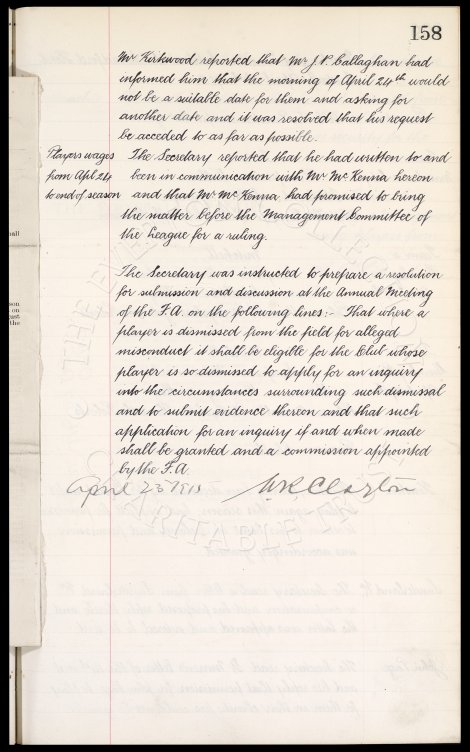 158
Mr Kirkwood reported that Mr J. P. Callaghan had
informed him that the morning of April 24th would
not be a suitable date for them and asking for
another date and it was resolved that his request
be acceded to as far as possible.
Players wages
from Apl 24
to end of season
The Secretary reported that he had written to and
been in communication with Mr McKenna hereon
and that Mr McKenna had promised to bring
the matter before the Management Committee of
the League for a ruling.
The Secretary was instructed to prepare a resolution
for submission and discussion at the Annual Meeting
of the F.A. on the following lines:- That where a
player is dismissed from the field for alleged
misconduct it shall be eligible for the Club whose
player is so dismissed to apply for an inquiry
into the circumstances surrounding such dismissal
and to submit evidence thereon and that such
application for an inquiry if and when made
shall be granted and a commission appointed
by the F.A.
April 23 1915
W R Clayton